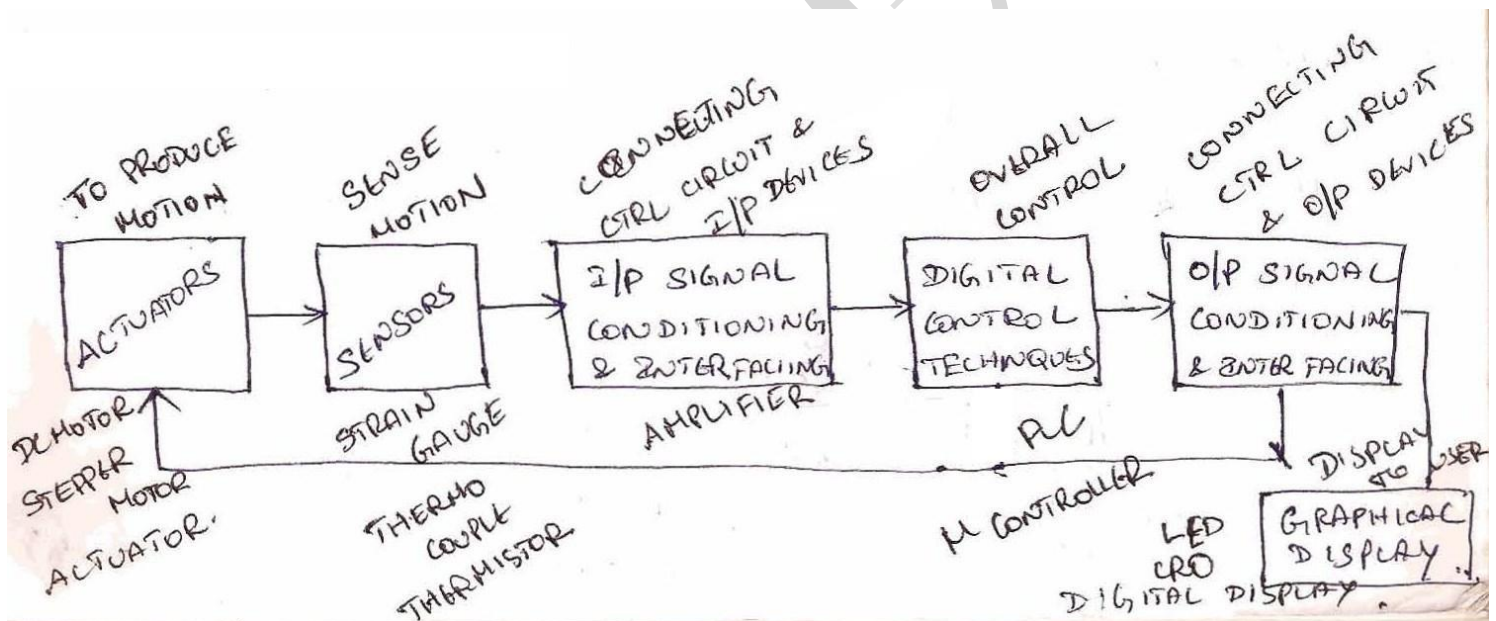 TO PRODUCE
MOTION
SENSE
MOTION
CONNECTING
CTRL CIRCUIT &
I/P DEVICES
OVERALL
CONTROL
CONNECTING
CTRL CIRCUIT
& O/P DEVICES
ACTUATORS
SENSORS
I/P SIGNAL
CONDITIONING
& INTERFACING
DIGITAL
CONTROL
TECHNIQUES
O/P SIGNAL
CONDITIONING
& INTERFACING
DC MOTOR
STEPPER
MOTOR
ACTUATOR.
STRAIN
GAUGE
THERMO
COUPLE
THERMISTOR
AMPLIFIER
PLC
M CONTROLLER
DISPLAY
TO USER
GRAPHICAL
DISPLAY
LED
CRO
DIGITAL DISPLAY.